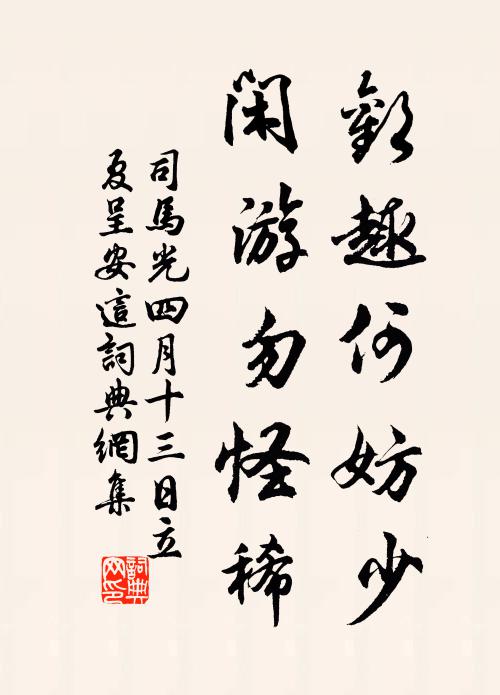 歡趣何妨少
閑游勿怪稀
司馬光四月十三日立
夏呈安這詞典網集
詞典
网印